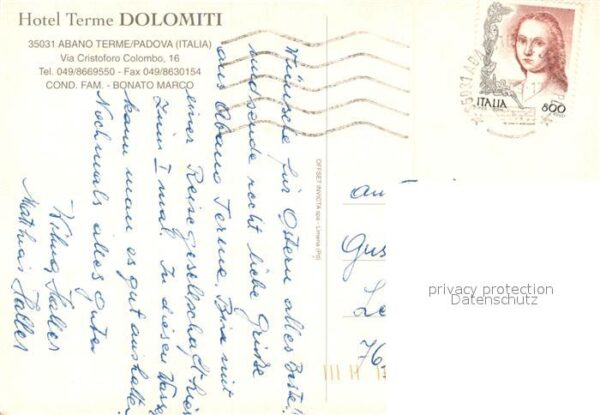 Hotel Terme DOLOMITI
35031 ABANO TERME/PADOVA (ITALIA)
Via Cristoforo Colombo, 16
Tel. 049/8669550 - Fax 049/8630154
COND. FAM. - BONATO MARCO
Wünsche für Ostern alles Beste!
und sende recht liebe Grüße
aus Abano Terme. Bin mit
einer Reisegesellschaft hier
zum I mal. In diesen
kann man es gut aushalten
Nochmals alles gute
Matthias
OFFSET INVICTA spa - Limena (Pd)
ITALIA
800
an
Gus
Le
76
privacy protection
Datenschutz